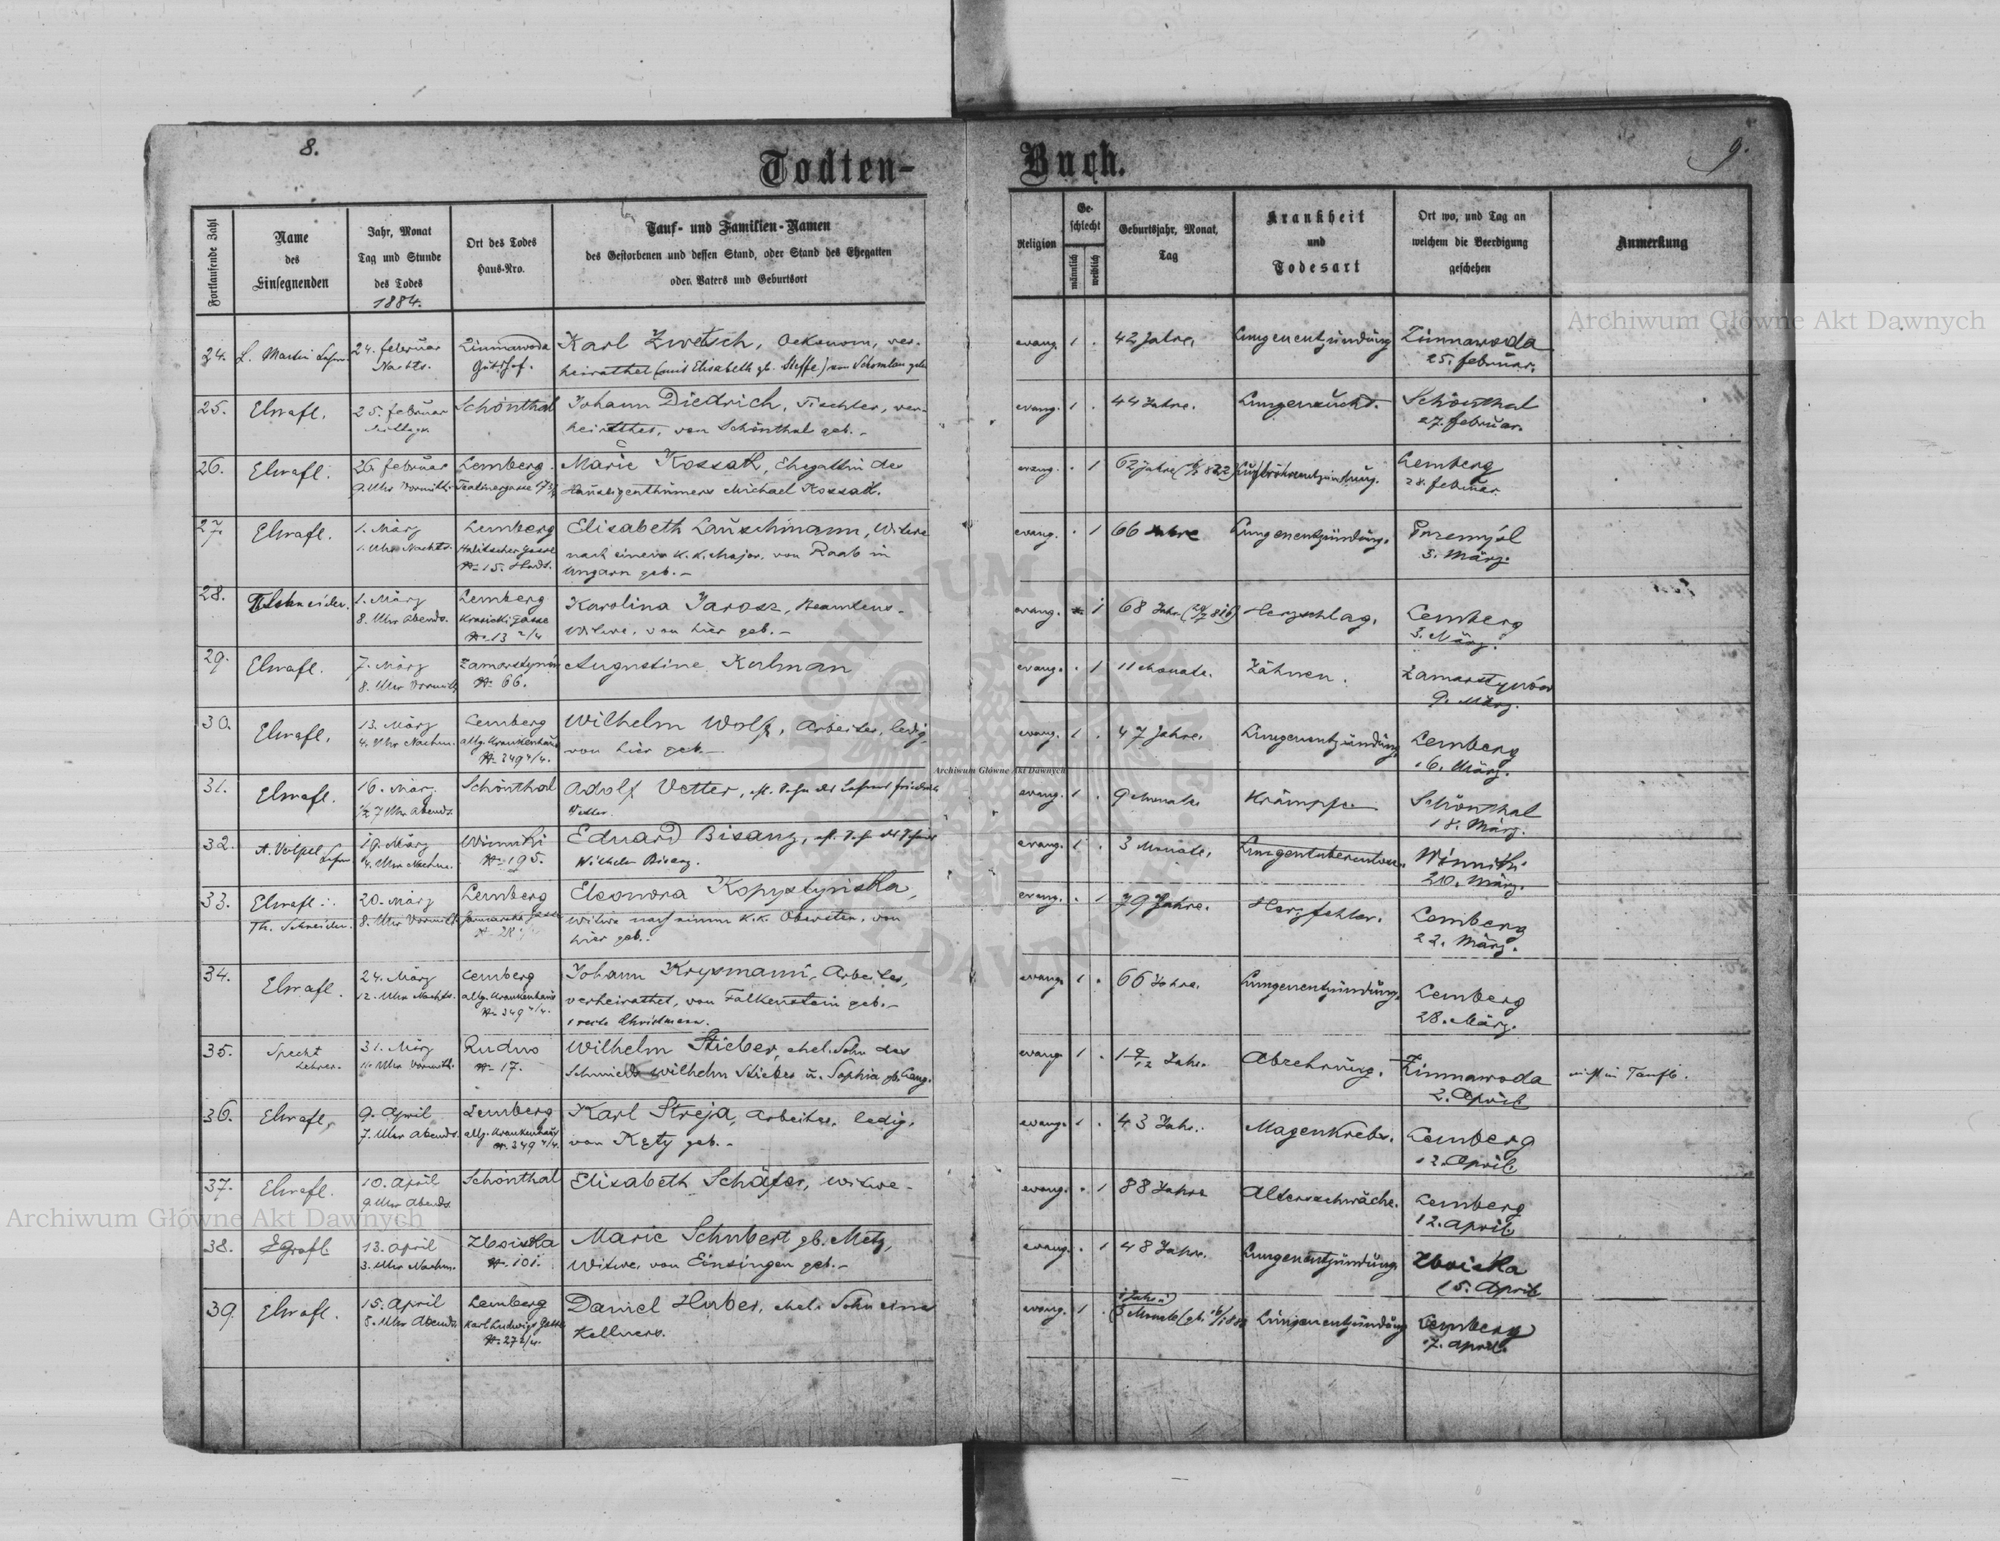 8.
9.
Todten-Buch.
Fortlaufende Zahl
Name des Einsegnenden
Jahr, Monat Tag und Stunde des Todes
1884.
Ort des Todes Haus-Nro.
Tauf- und Familien-Namen
des Gestorbenen und dessen Stand, oder Stand des Ehegatten
oder Vaters und Geburtsort
Religion
Geschlecht
männlich
weiblich
Geburtsjahr, Monat, Tag
Krankheit und Todesart
Ort wo, und Tag an welchem die Beerdigung geschehen
Anmerkung
24. L. Martin 24. Februar Nachts. Zimnawoda Gutshof. Karl Zwetsch, Oekonom, ver-
heirathet (mit Elisabeth gb. Steffe) von
evang. 1 . 42 Jahre, Lungenentzündung Zimnawoda
25. Februar.
25. Elsrafl. 25. Februar Schönthal Johann Diedrich, ver-
heirathet, von Schönthal geb. –
evang. 1 . 44 Jahre. Lungensucht. Schönthal
27. Februar.
26. Elsrafl. 26. Februar Lemberg. Marie Kossak, Ehegattin des
9. Uhr Vormitt. Hauseigenthümers Michael Kossak.
evang. . 1 62 Jahre Luftröhrenentzündung. Lemberg
28. Februar.
27. Elsrafl. 1. März Lemberg Elisabeth Lauschmann, Witwe
1. Uhr Nachts. Halitscher Gasse nach einem k. k. Major, von Raab in
№ 15. Stadt. Ungarn geb. –
evang. . 1 66 Jahre Lungenentzündung. Przemyśl
3. März.
28. Schneider. 1. März Lemberg Karolina Jarosz, Beamtens-
8. Uhr Abends. Krasicki Gasse Witwe, von hier geb. –
№ 13 2/4
evang. 1 68 Jahr Herzschlag. Lemberg
3. März.
29. Elsrafl. 7. März Zamarstynów Augustine Kulman
8. Uhr Vormitt. № 66.
evang. . 1 11 Monate. Zähnen. Zamarstynów
9. März.
30. Elsrafl. 13. März Lemberg Wilhelm Wolf, Arbeiter, ledig,
4. Uhr Nachm. allg. Krankenhaus von hier geb. –
№ 349 4/4.
evang. 1 . 47 Jahre. Lungenentzündung Lemberg
16. März.
31. Elsrafl. 16. März Schönthal Adolf Vetter, Sohn des Lehrers Friedrich
1/2 7 Uhr Abends. Vetter.
evang. 1 . 9 Monate Krämpfe Schönthal
18. März.
32. A. Volpel 19. März Winniki Eduard Bisanz,
4. Uhr Nachm. № 195. Wilhelm Bisanz.
evang. 1 . 3 Monate, Winniki
20. März.
33. Elsrafl 20. März Lemberg Eleonora Kopystyńska,
Th. Schneider. 8. Uhr Vormitt. Witwe nach einem k. k. Obersten, von
hier geb.
evang. . 1 79 Jahre. Herzfehler. Lemberg
22. März.
34. Elsrafl. 24. März Lemberg Johann Krysmann, Arbeiter,
12. Uhr Nachts. allg. Krankenhaus verheirathet, von Falkenstein geb. –
№ 349 4/4. recte Christmann.
evang. 1 . 66 Jahre. Lungenentzündung. Lemberg
28. März.
35. Specht 31. März Rudno Wilhelm Stieber, ehel. Sohn des
Lehrer. 11. Uhr Vormitt. № 17. Schmieds Wilhelm Stieber u. Sophia gb. Lang.
evang. 1 . 1 9/12 Jahr. Abzehrung. Zimnawoda nicht im Taufb.
2. April
36. Elsrafl. 9. April Lemberg Karl Streja, Arbeiter, ledig,
7. Uhr Abends. allg. Krankenhaus von Kęty geb. –
№ 349 4/4.
evang. 1 . 43 Jahr. Magenkrebs. Lemberg
12. April.
37. Elsrafl. 10. April Schönthal Elisabeth Schäfer, Witwe –
9 Uhr Abends.
evang. . 1 88 Jahre Altersschwäche. Lemberg
12. April.
38. 13. April Zboiska Marie Schubert gb. Metz,
3. Uhr Nachm. № 101. Witwe, von Einsingen geb. –
evang. . 1 48 Jahre. Lungenentzündung Zboiska
15. April
39. Elsrafl. 15. April Lemberg Daniel Huber, ehel. Sohn eines
8. Uhr Abends. Karl Ludwigs Gasse Kellners.
№ 27 2/4.
evang. 1 . Lungenentzündung Lemberg
17. April.
Archiwum Główne Akt Dawnych
Archiwum Główne Akt Dawnych
Archiwum Główne Akt Dawnych
ARCHIWUM GŁÓWNE AKT DAWNYCH